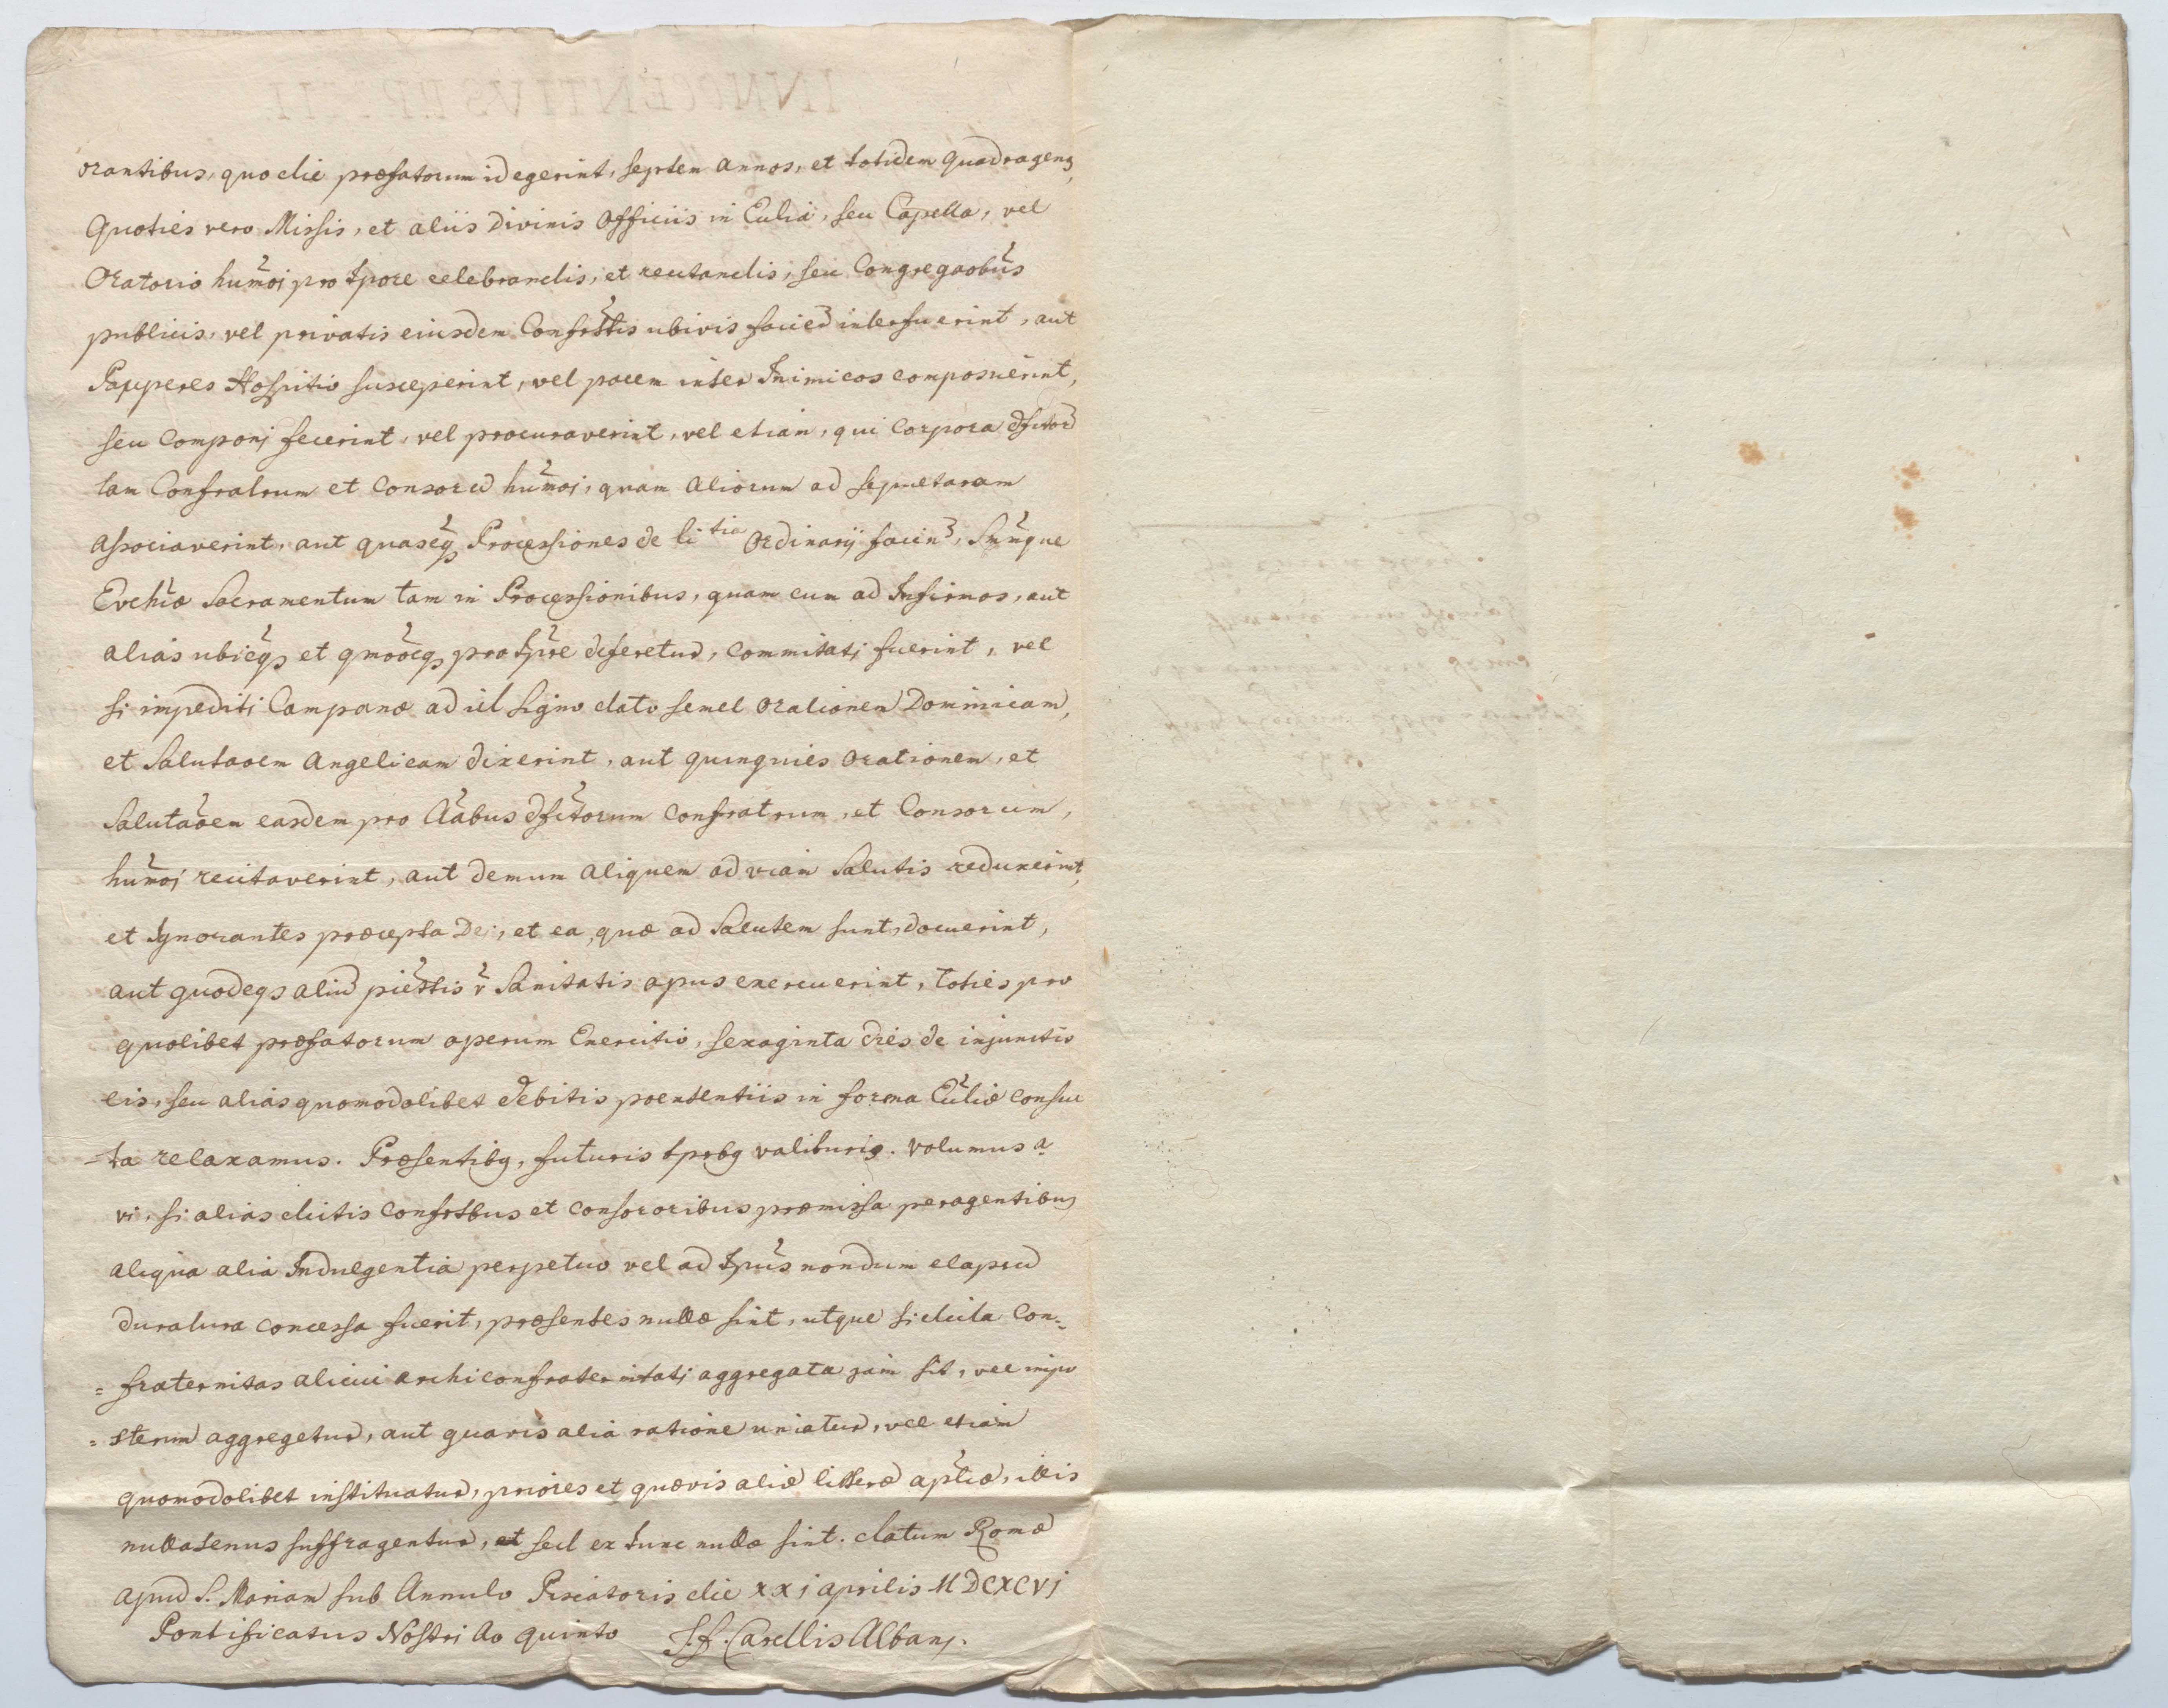 orantibus, quo die præfatorum id egerint, septem annos, et totidem quadragenas
Quoties vero Missis, et aliis Divinis Officiis in Eccliã, seu Capella, vel
Oratorio humõi pro tpore celebrandis, et recitandis, seu Congregaobũs
publicis, vel privatis eiusdem Confrttis ubivis facied interfuerint, aut
Pauperes Hospitio susceperint, vel pacem inter Inimicos composuerint,
seu Componi fecerint, vel procuraverint, vel etiam, qui Corpora dfctor
tam Confratrum et Consorũ humõi, quam aliorum ad sepulturam
associaverint, aut quascq̃ Processiones de li tia Ordinarij facien, Smũque
Evchiæ Sacramentum tam in Processionibus, quam cum ad Infirmos, aut
alias ubicq̃ et qmõcq̃ pro tpre deferetur, commitati fuerint, vel
si impediti Campanæ ad id signo dato semel orationem Dominicam,
et Salutaoem Angelicam dixerint, aut quinquies orationem, et
Salutaõem easdem pro Aãbus dfctorum confratrum, et Consorum,
humõi recitaverint, aut demum aliquem ad viam Salutis reduxerint,
et Ignorantes præcepta Dei, et ea, quæ ad Salutem sunt, docuerint,
aut quodcqs aliud piettis ṽ Sanitatis opus exercuerint, toties pro
quolibet præfatorum operum Exercitio, sexaginta dies de injunctis
eis, seu alias quomodolibet debitis poenitentiis in forma Ecc̃liæ consue
-ta relaxamus. Præsentibq, futuris tprbq valituris. volumus a
vt. si alias dictis Confrtbus et consororibus præmissa peragentibus
aliqua alia Indulgentia perpetuo vel ad tpũs nondum elapsũ
duratura concessa fuerit, præsentes nullæ sint, utque si dicta Con-
= fraternitas alicui archiconfraternitati aggregata jam sit, vel inpo
= sterum aggregetur, aut quavis alia ratione uniatur, vel etiam
quomodolibet instituatur, priores et quævis aliæ litteræ aptcæ, illis
nullatenus suffragentur, et sed ex tunc nullæ sint. datum Romæ
apud S. Mariam sub Annulo Piscatoris die xxi aprilis MDCXCVI
Pontificatus Nostri Ao quinto J.f. Carellis Albanj.